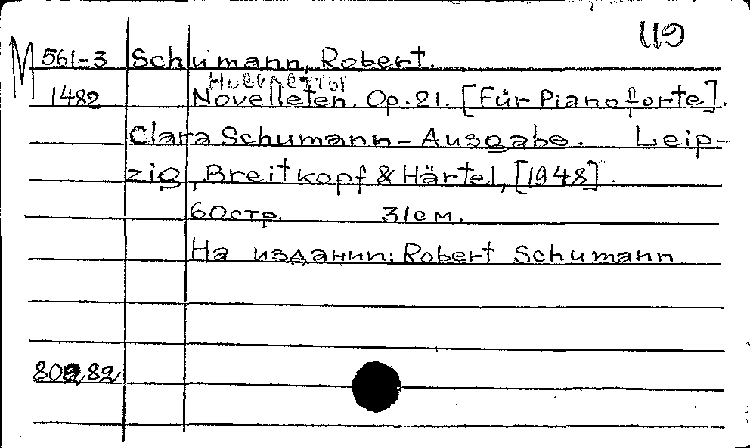 ЦФ
М 561-3 Schumann, Robert.
1482 Novelleten. Op. 21. [Für Pianoforte].
Clara Schumann-Ausgabe. Leip-
zig, Breitkopf & Härtel, [1948].
60стр. 31см.
На издании: Robert Schumann